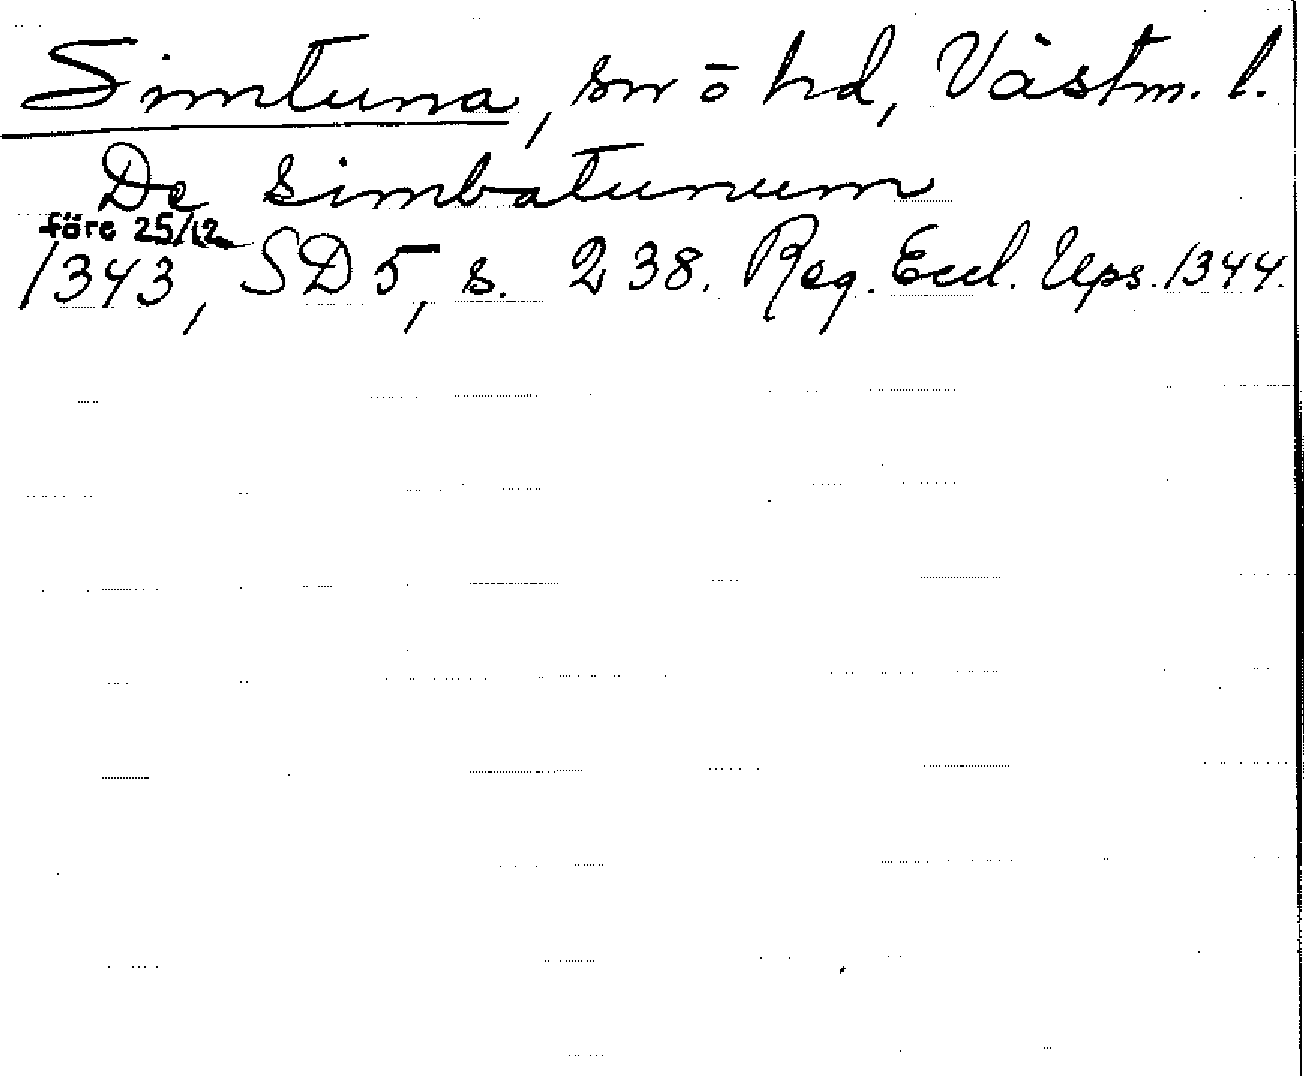 Simtuna, sn o hd, Västm. l.
De simbatunum
före 25/12
1343, SD 5, s. 238. Reg. Eccl. Ups. 1344.